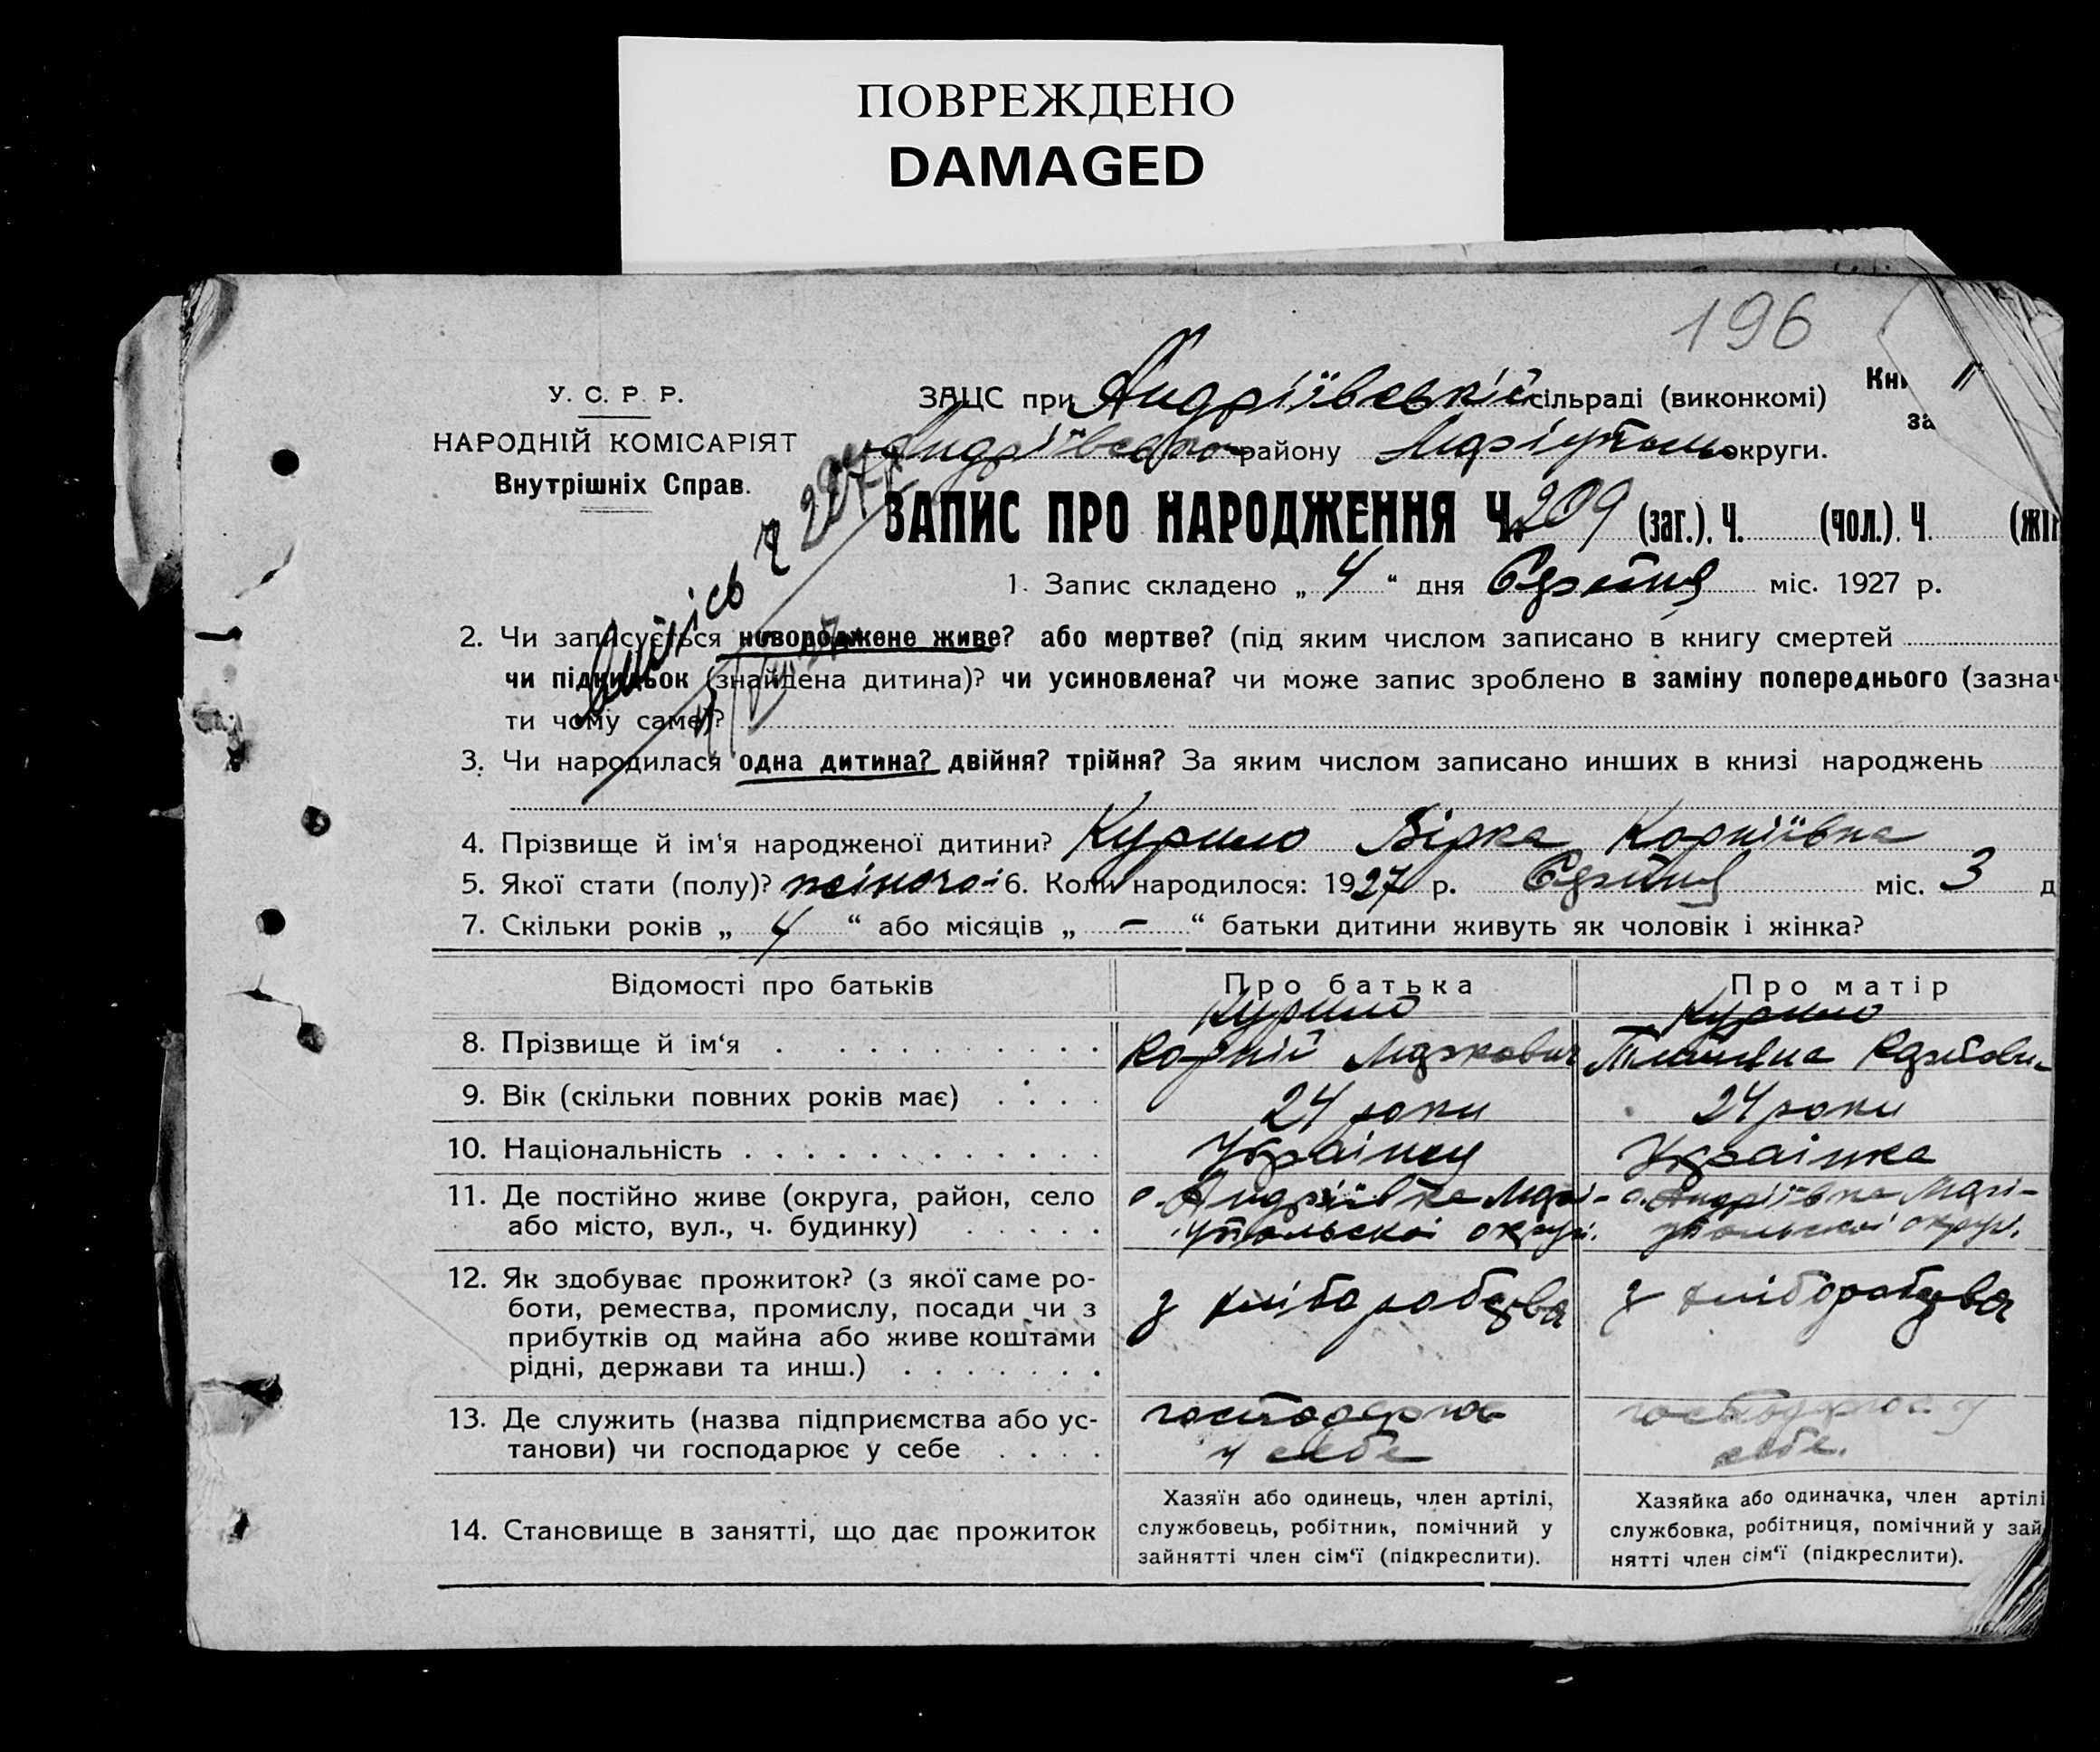 ПОВРЕЖДЕНО
DAMAGED
196
У. С. Р. Р.
НАРОДНІЙ КОМІСАРІЯТ
Внутрішніх Справ.
ЗАЦС при Андріївській сільраді (виконкомі)
Андріївського району Маріупольс округи.
Кни
за
ЗАПИС ПРО НАРОДЖЕННЯ Ч. 209 (заг.). Ч. (чол.). Ч. (жін
1. Запис складено „ 4 “ дня Серпня міс. 1927 р.
2. Чи записується новороджене живе? або мертве? (під яким числом записано в книгу смертей
чи підкидьок (знайдена дитина)? чи усиновлена? чи може запис зроблено в заміну попереднього (зазнач
ти чому саме)?
3. Чи народилася одна дитина? двійня? трійня? За яким числом записано инших в книзі народжень
4. Прізвище й ім'я народженої дитини? Курило Вірка Корніївна
5. Якої стати (полу)? жіночої 6. Коли народилося: 1927 р. Серпня міс. 3 д
7. Скільки років „ 4 “ або місяців „ – “ батьки дитини живуть як чоловік і жінка?
Відомості про батьків Про батька Про матір
Курило Курило
8. Прізвище й ім‘я Корній Маркович Тетяна
9. Вік (скільки повних років має) 24 роки 24 роки
10. Національність Українец Українка
11. Де постійно живе (округа, район, село с. Андріївка Марі- с. Андріївка Марі-
або місто, вул., ч. будинку) упольскоі округи. упольскоі округи.
12. Як здобуває прожиток? (з якої саме ро-
боти, ремества, промислу, посади чи з з хліборобства з хліборобства
прибутків од майна або живе коштами
рідні, держави та инш.)
13. Де служить (назва підприємства або ус- господарює господарює у
танови) чи господарює у себе у себе себе.
14. Становище в занятті, що дає прожиток
Хазяїн або одинець, член артілі,
службовець, робітник, помічний у
зайнятті член сім‘ї (підкреслити).
Хазяйка або одиначка, член артілі
службовка, робітниця, помічний у зай
нятті член сім‘ї (підкреслити).